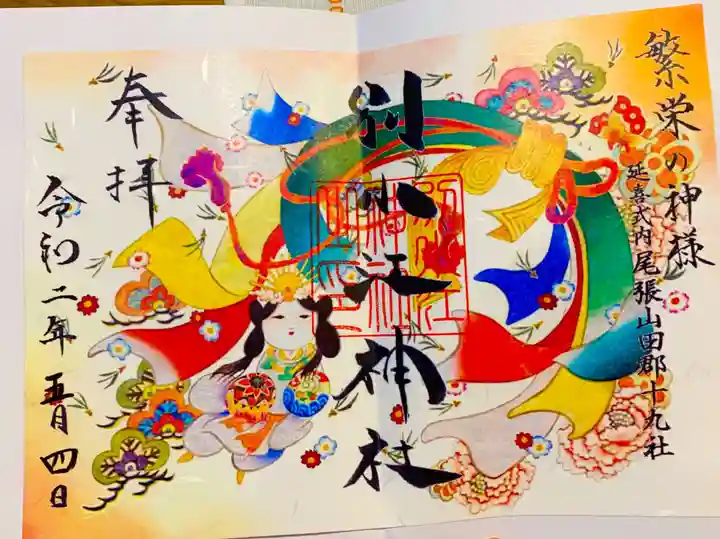 繁栄の神様
延喜式内尾張山田郡十九社
別小江神社
奉拝
令和二年五月四日